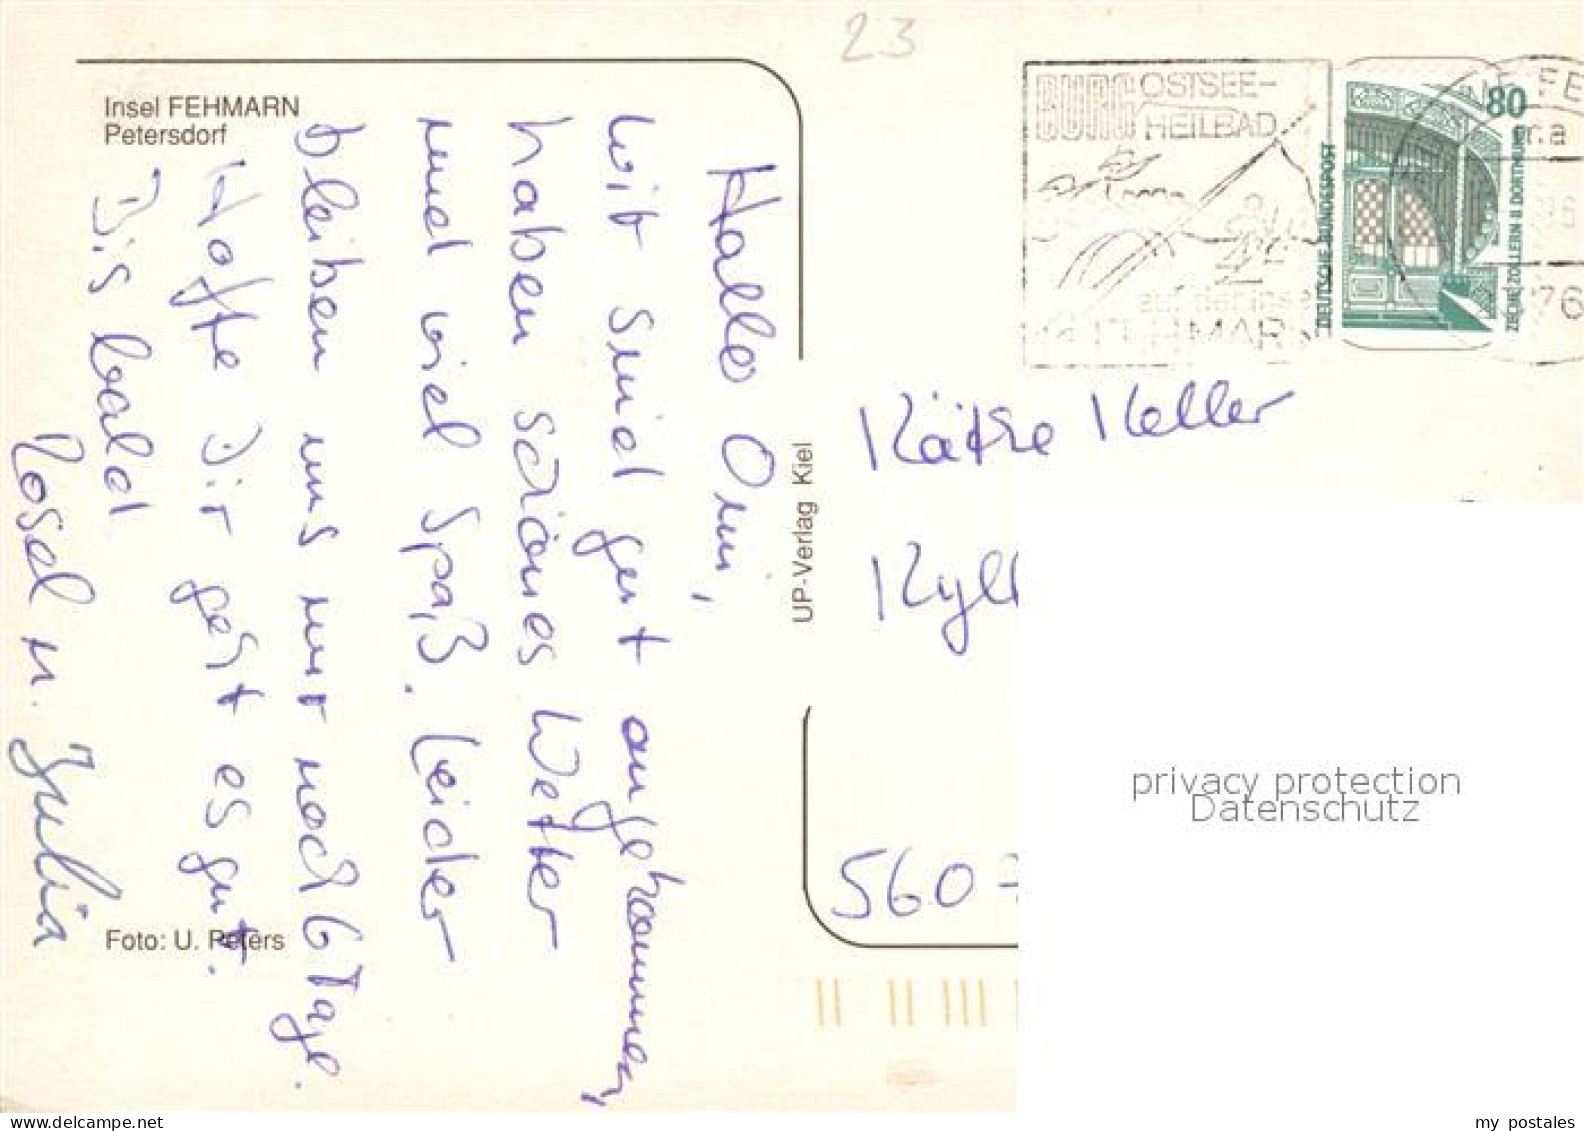 23
Insel FEHMARN
Petersdorf
Hallo Omi,
wir sind gut angekommen,
haben schönes Wetter
und viel Spaß. Leider
bleiben uns nur noch 6 Tage.
Hoffe Dir geht es gut.
Bis bald
Rosel u. Julia
Foto: U. Peters
UP-Verlag Kiel
BURG OSTSEE-
HEILBAD
auf der Insel
FEHMARN
80
DEUTSCHE BUNDESPOST
ZECHE ZOLLERN II DORTMUND
76
Käthe Keller
Kyll
560
privacy protection
Datenschutz
delcampe.net
my postales